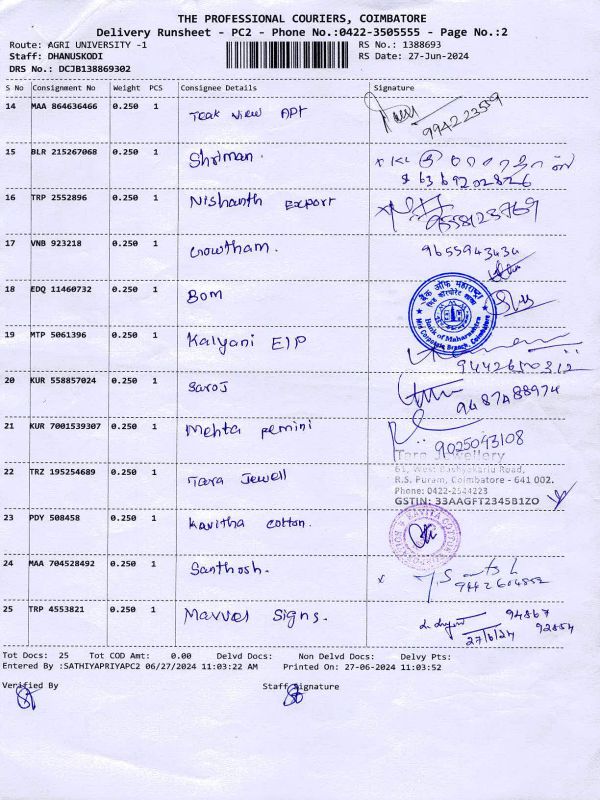 THE PROFESSIONAL COURIERS, COIMBATORE
Delivery Runsheet - PC2 - Phone No.:0422-3505555 - Page No.:2
Route: AGRI UNIVERSITY -1 RS No.: 1388693
Staff: DHANUSKODI RS Date: 27-Jun-2024
DRS No.: DCJB138869302
S No Consignment No Weight PCS Consignee Details Signature
14 MAA 864636466 0.250 1 Teak view APt
15 BLR 215267068 0.250 1 Shriman.
16 TRP 2552896 0.250 1 Nishanth Export
9558123769
17 VNB 923218 0.250 1 Gowtham. 9655943434
18 EDQ 11460732 0.250 1 BOM
बैंक ऑफ महाराष्ट्र
Bank of Maharashtra
Mid Corporate Branch, Coimbatore
19 MTP 5061396 0.250 1 Kalyani EIP
9442650312
20 KUR 558857024 0.250 1 Saroj
9487488974
21 KUR 7001539307 0.250 1 Mehta pemini
9025043108
Tara Jewellery
22 TRZ 195254689 0.250 1 Tara Jewell
R.S. Puram, Coimbatore - 641 002.
Phone: 0422-2544223
GSTIN: 33AAGFT2345B1ZO
23 PDY 508458 0.250 1 Kavitha cotton.
KAVITA COTTON
24 MAA 704528492 0.250 1 Santhosh. x
9442604852
25 TRP 4553821 0.250 1 Marvel Signs. 94867
92854
27/6/24
Tot Docs: 25 Tot COD Amt: 0.00 Delvd Docs: Non Delvd Docs: Delvy Pts:
Entered By :SATHIYAPRIYAPC2 06/27/2024 11:03:22 AM Printed On: 27-06-2024 11:03:52
Verified By Staff Signature